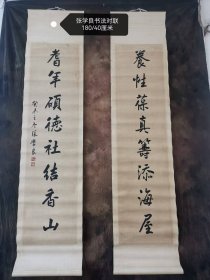 张学良书法对联
180/40厘米
養性葆真籌添海屋
耆年碩德社結香山
張學良